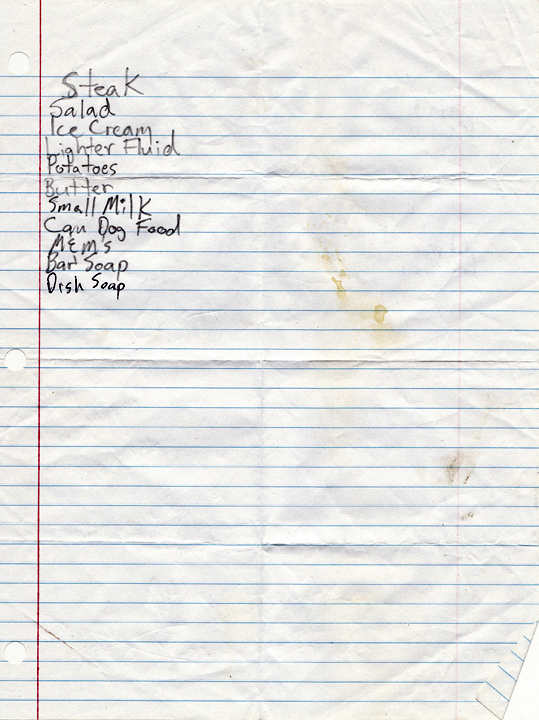 Steak
Salad
Ice Cream
Lighter Fluid
Potatoes
Butter
Small Milk
Can Dog Food
M&M's
Bar Soap
Dish Soap